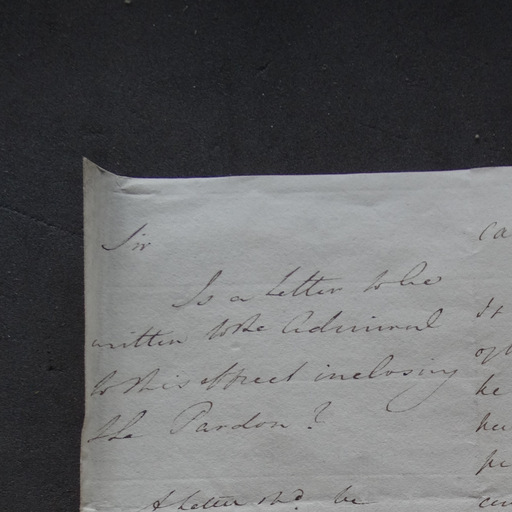 Sir
Is a Letter to be
written to the Admiral
to this effect inclosing
the Pardon?
A Letter shd. be